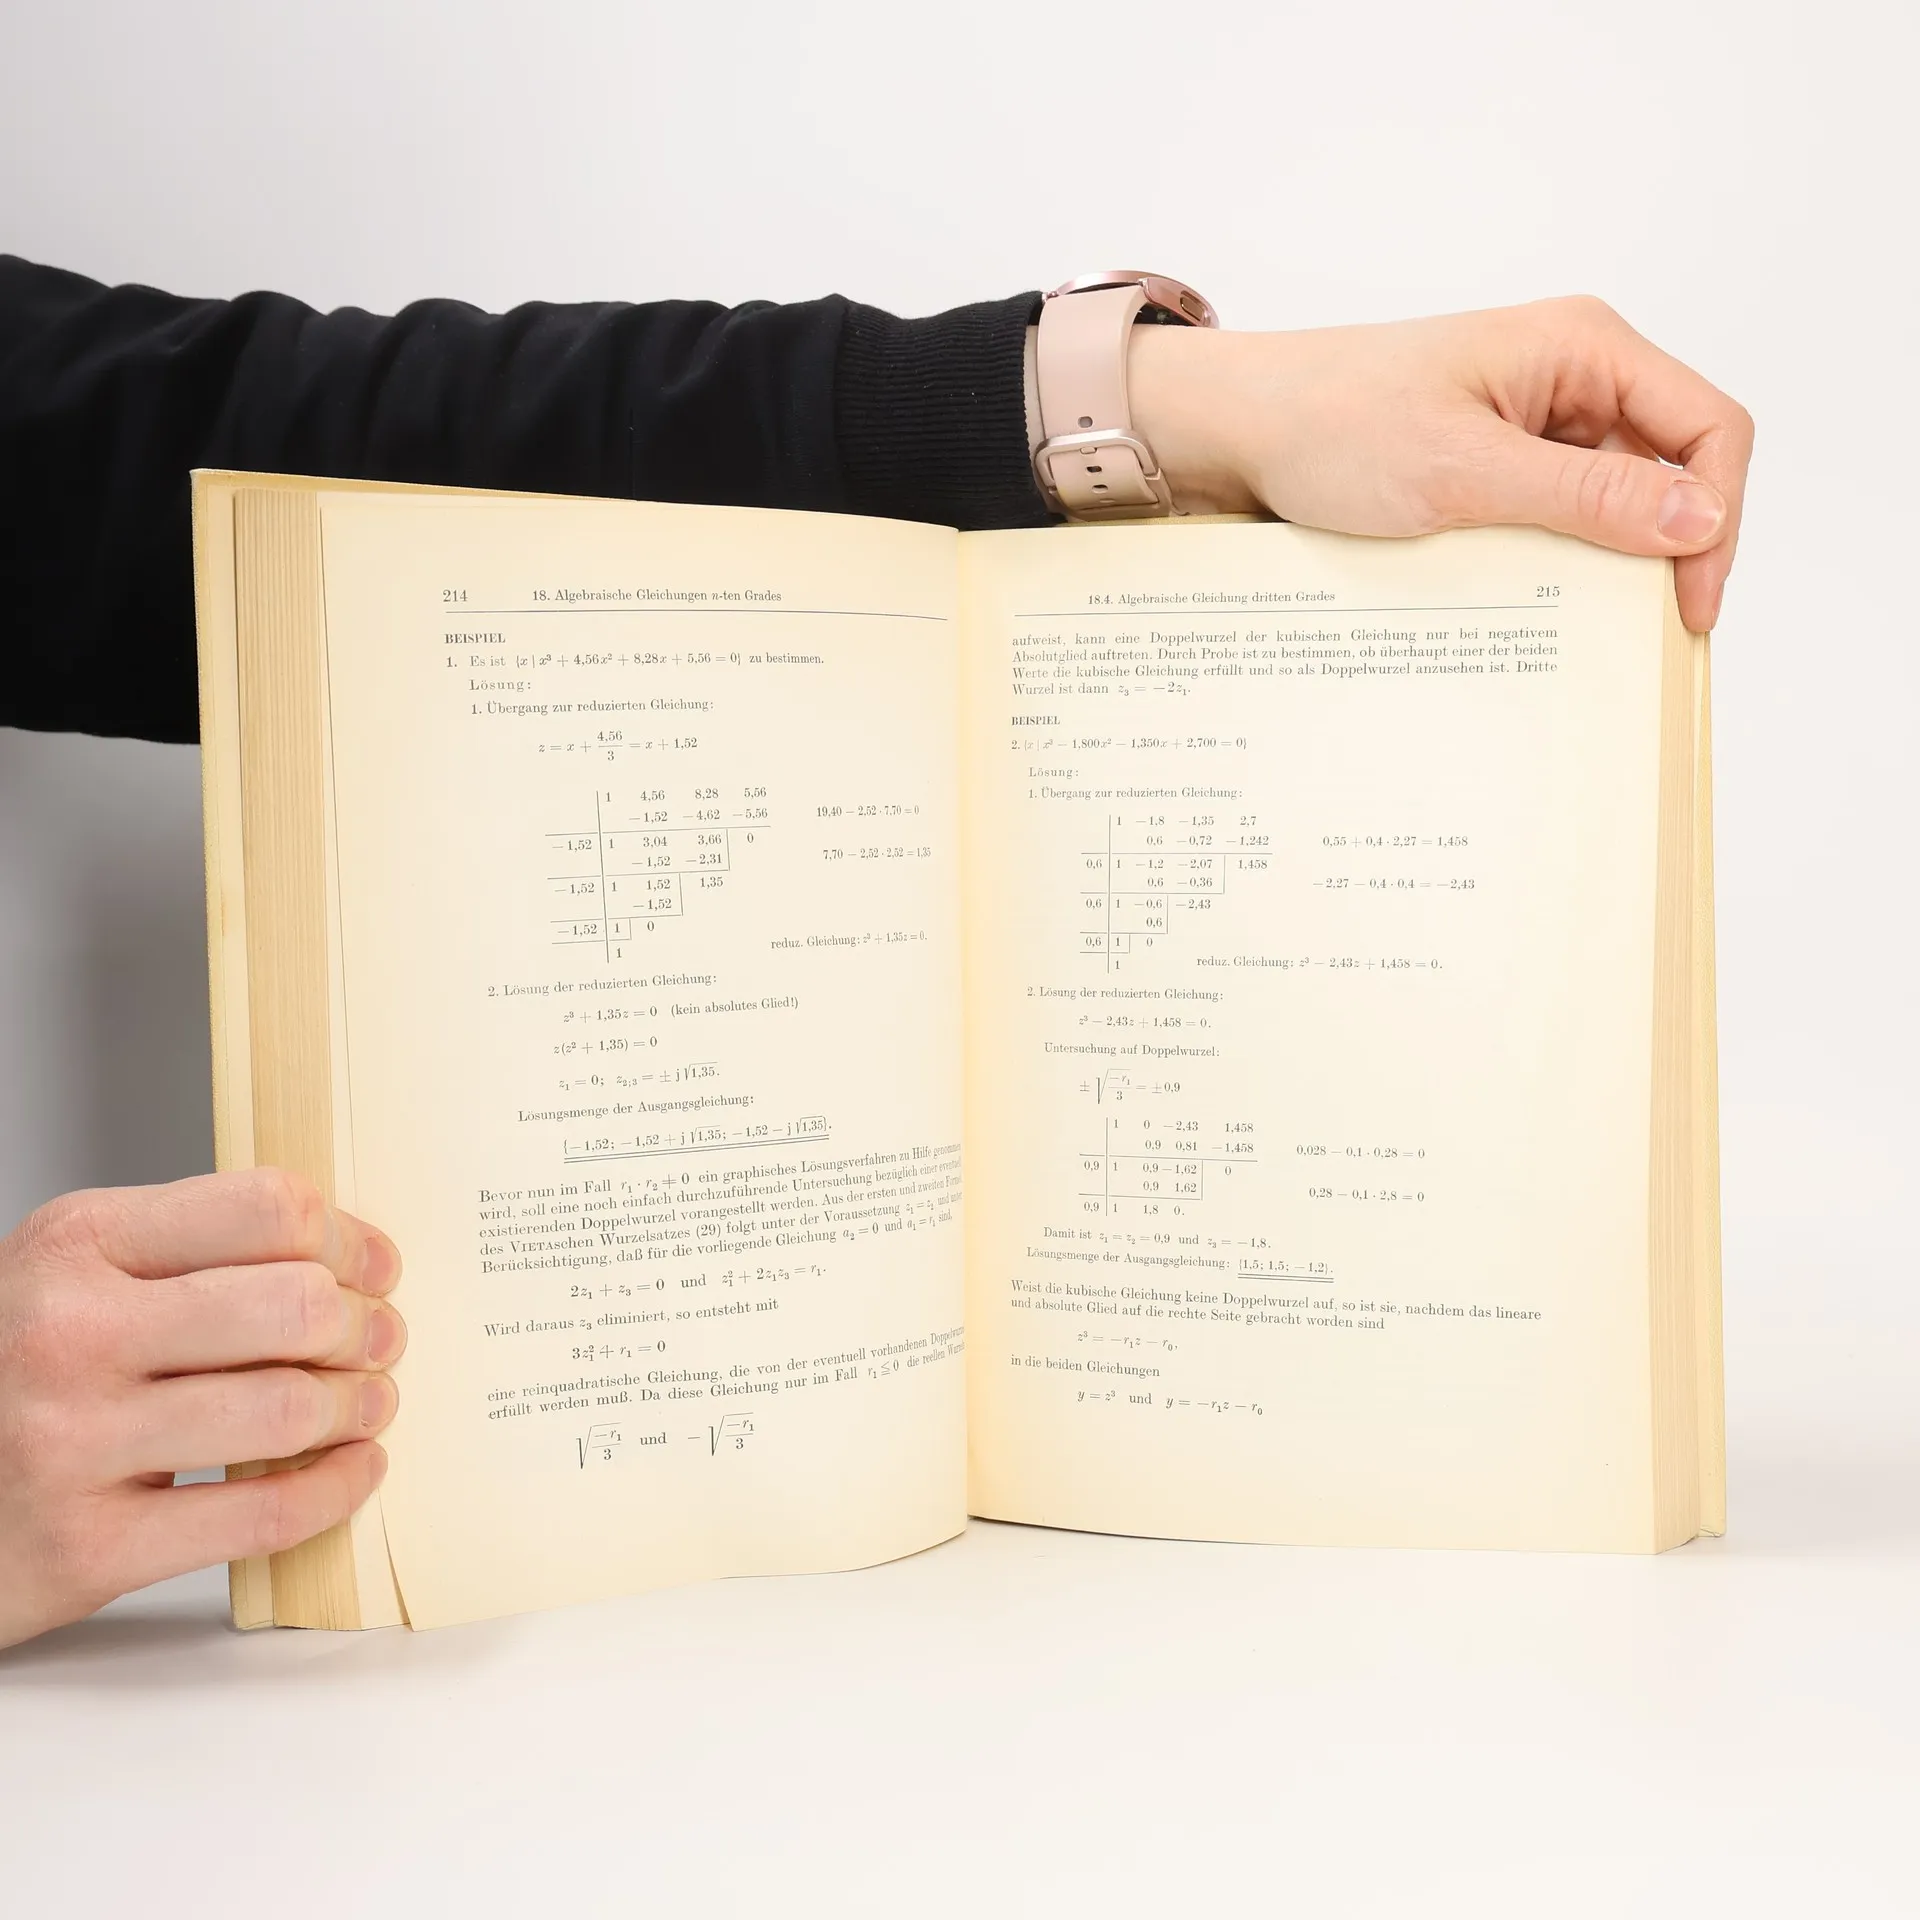 214 18. Algebraische Gleichungen n-ten Grades
BEISPIEL
1. Es ist {x | x³ + 4,56x² + 8,28x + 5,56 = 0} zu bestimmen.
Lösung:
1. Übergang zur reduzierten Gleichung:
z = x + 4,56/3 = x + 1,52
1 4,56 8,28 5,56
−1,52 −4,62 −5,56 19,40 − 2,52 · 7,70 = 0
−1,52 1 3,04 3,66 0
−1,52 −2,31 7,70 − 2,52 · 2,52 = 1,35
−1,52 1 1,52 1,35
−1,52
−1,52 1 0
1 reduz. Gleichung: z³ + 1,35z = 0.
2. Lösung der reduzierten Gleichung:
z³ + 1,35z = 0 (kein absolutes Glied!)
z(z² + 1,35) = 0
z₁ = 0; z₂;₃ = ± j √1,35.
Lösungsmenge der Ausgangsgleichung:
{−1,52; −1,52 + j √1,35; −1,52 − j √1,35}.
Bevor nun im Fall r₁ · r₂ ≠ 0 ein graphisches Lösungsverfahren zu Hilfe genommen
wird, soll eine noch einfach durchzuführende Untersuchung bezüglich einer eventuell
existierenden Doppelwurzel vorangestellt werden. Aus der ersten und zweiten
des VIETAschen Wurzelsatzes (29) folgt unter der Voraussetzung z₁ = z₂ und unter
Berücksichtigung, daß für die vorliegende Gleichung a₂ = 0 und a₁ = r₁ sind,
2z₁ + z₃ = 0 und z₁² + 2z₁z₃ = r₁.
Wird daraus z₃ eliminiert, so entsteht mit
3z₁² + r₁ = 0
eine reinquadratische Gleichung, die von der eventuell vorhandenen
erfüllt werden muß. Da diese Gleichung nur im Fall r₁ ≦ 0 die reellen
√(−r₁/3) und −√(−r₁/3)
18.4. Algebraische Gleichung dritten Grades 215
aufweist, kann eine Doppelwurzel der kubischen Gleichung nur bei negativem
Absolutglied auftreten. Durch Probe ist zu bestimmen, ob überhaupt einer der beiden
Werte die kubische Gleichung erfüllt und so als Doppelwurzel anzusehen ist. Dritte
Wurzel ist dann z₃ = −2z₁.
BEISPIEL
2. {x | x³ − 1,800x² − 1,350x + 2,700 = 0}
Lösung:
1. Übergang zur reduzierten Gleichung:
1 −1,8 −1,35 2,7
0,6 −0,72 −1,242 0,55 + 0,4 · 2,27 = 1,458
0,6 1 −1,2 −2,07 1,458
0,6 −0,36 −2,27 − 0,4 · 0,4 = −2,43
0,6 1 −0,6 −2,43
0,6
0,6 1 0
1 reduz. Gleichung: z³ − 2,43z + 1,458 = 0.
2. Lösung der reduzierten Gleichung:
z³ − 2,43z + 1,458 = 0.
Untersuchung auf Doppelwurzel:
± √(−r₁/3) = ±0,9
1 0 −2,43 1,458
0,9 0,81 −1,458 0,028 − 0,1 · 0,28 = 0
0,9 1 0,9 −1,62 0
0,9 1,62 0,28 − 0,1 · 2,8 = 0
0,9 1 1,8 0.
Damit ist z₁ = z₂ = 0,9 und z₃ = −1,8.
Lösungsmenge der Ausgangsgleichung: {1,5; 1,5; −1,2}.
Weist die kubische Gleichung keine Doppelwurzel auf, so ist sie, nachdem das lineare
und absolute Glied auf die rechte Seite gebracht worden sind
z³ = −r₁z − r₀,
in die beiden Gleichungen
y = z³ und y = −r₁z − r₀